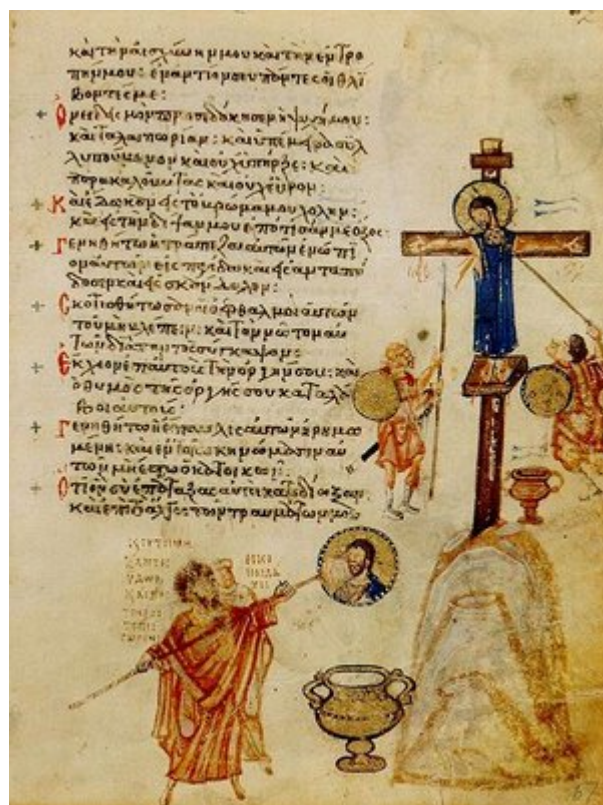 καὶ τὴν αἰσχύνην μου καὶ τὴν ἐντρο
πήν μου: ἐναντίον σου πάντες οἱ θλί
βοντές με:
Ὀνειδισμὸν προσεδόκησεν ἡ ψυχή μου:
καὶ ταλαιπωρίαν: καὶ ὑπέμεινα συλ
λυπούμενον καὶ οὐχ ὑπῆρξε: καὶ
παρακαλοῦντας καὶ οὐχ εὗρον:
Καὶ ἔδωκαν εἰς τὸ βρῶμα μου χολὴν:
καὶ εἰς τὴν δίψαν μου ἐπότισάν με ὄξος:
Γενηθήτω ἡ τράπεζα αὐτῶν ἐνώπι
ον αὐτῶν εἰς παγίδα καὶ εἰς ἀνταπό
δοσιν καὶ εἰς σκάνδαλον:
Σκοτισθήτωσαν οἱ ὀφθαλμοὶ αὐτῶν
τοῦ μὴ βλέπειν: καὶ τὸν νῶτον αὐ
τῶν διὰ παντὸς σύγκαμψον:
Ἔκχεον ἐπ' αὐτοὺς τὴν ὀργήν σου: καὶ
ὁ θυμὸς τῆς ὀργῆς σου καταλά
βοι αὐτούς:
Γενηθήτω ἡ ἔπαυλις αὐτῶν ἠρημω
μένη: καὶ ἐν τοῖς σκηνώμασιν αὐ
τῶν μὴ ἔστω ὁ κατοικῶν:
Ὅτι ὃν σὺ ἐπάταξας αὐτοὶ κατεδίωξαν
καὶ ἐπὶ τὸ ἄλγος τῶν τραυμάτων μου
67